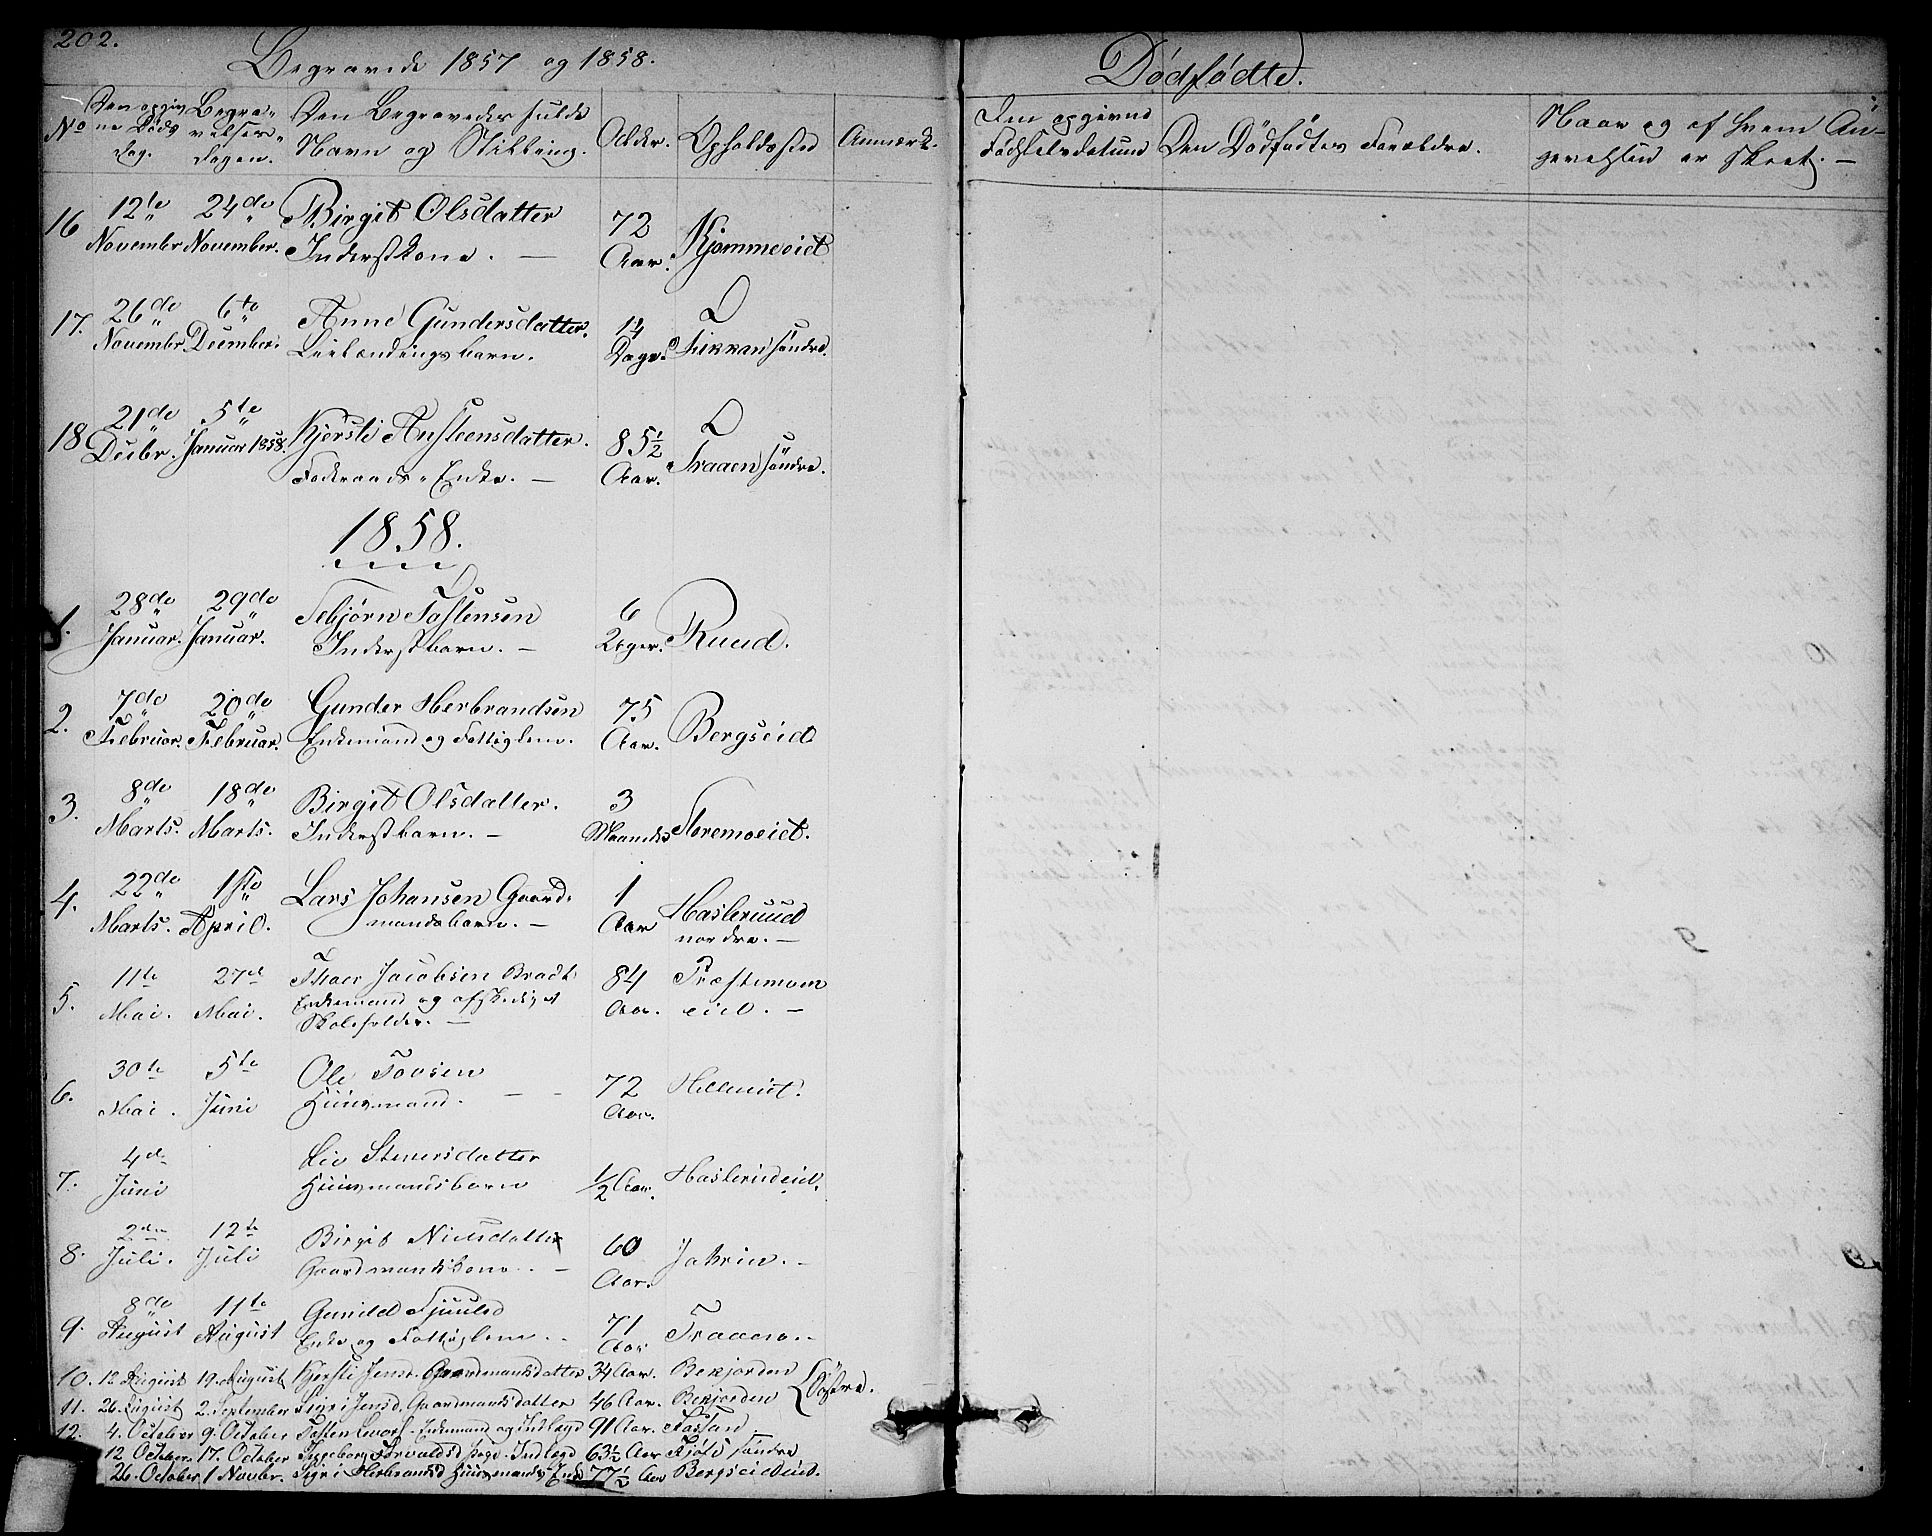 202.
Begravede 1857 og 1858.
No
Den opgiv
ne Døds
dag.
Begra-
velses-
dagen.
Den Begravedes fulde
Navn og Stilling.
Alder.
Opholdssted
Anmerk.
16
12te
Novembr
24de
November.
Birgit Olsdatter
Inderstkone. —
72
Aar.
Kjømmeeiet
17.
26de
Novembr
6te
December.
Anne Gundersdatter.
Leilændingsbarn.
14
Dage.
søndre.
18
21de
Decbr.
5te
Januar 1858.
Kjersti Østeensdatter.
Føderaads-Enke. —
85½
Aar.
Traaen søndre.
1858.
1.
28de
Januar.
29de
Januar.
Tebjørn Tostensen
Inderstbarn. —
6
Uger.
Ruud.
2.
7de
Februar.
20de
Februar.
Gunder Herbrandsen
Enkemand og Fattiglem.
75
Aar.
Bergseid.
3.
8de
Marts.
18de
Marts.
Birgit Olsdatter.
Inderstbarn. —
3
Maaneder
Floremoeiet.
4.
22de
Marts.
1ste
April.
Lars Johansen Gaard-
mandsbarn. —
1
Aar
Hasleruud
nordre. —
5.
11te
Mai.
27de
Mai.
Thoer Jacobsen Bradt
Enkemand og afskediget
Skoleholder. —
84
Aar.
Præstemoen
eiet. —
6.
30te
Mai.
5te
Juni
Ole Tovsen
Huusmand. — -
72
Aar.
7.
4de
Juni
Liv Stenersdatter
Huusmandsbarn
½ Aar.
Haslerudeiet.
8.
2den
Juli.
12te
Juli
Birgit Nielsdatter
Gaardmandskone. —
60
Aar.
Jahren. -
9.
8de
August
11te
August
Gunild Tjuulsd
Enke og Fattiglem. -
71
Aar
Traaen. -
10. 12 August 19. August Kjersti Jensd. Gaardmandsdatter 34 Aar. Bekjorden
11. 26. August 2. September Sigri Jensd. Gaardmandsdatter 46 Aar. Bekjorden } Søstre.
12. 4. October 9. October Tosten Enkemand og Indlagd 91 Aar.
12 October. 17. October Ingeborg Torvaldsd Pige Indlagd 63½ Aar søndre
26. October 1 Novbr. Sigri Herbrandsd Huusmands Enke 77½ Aar Bergseideiet.
Dødfødte.
Den opgivne
Fødselsdatum
Den Dødfødtes Forældre.
Naar og af hvem An-
gevelsen er skeet. —